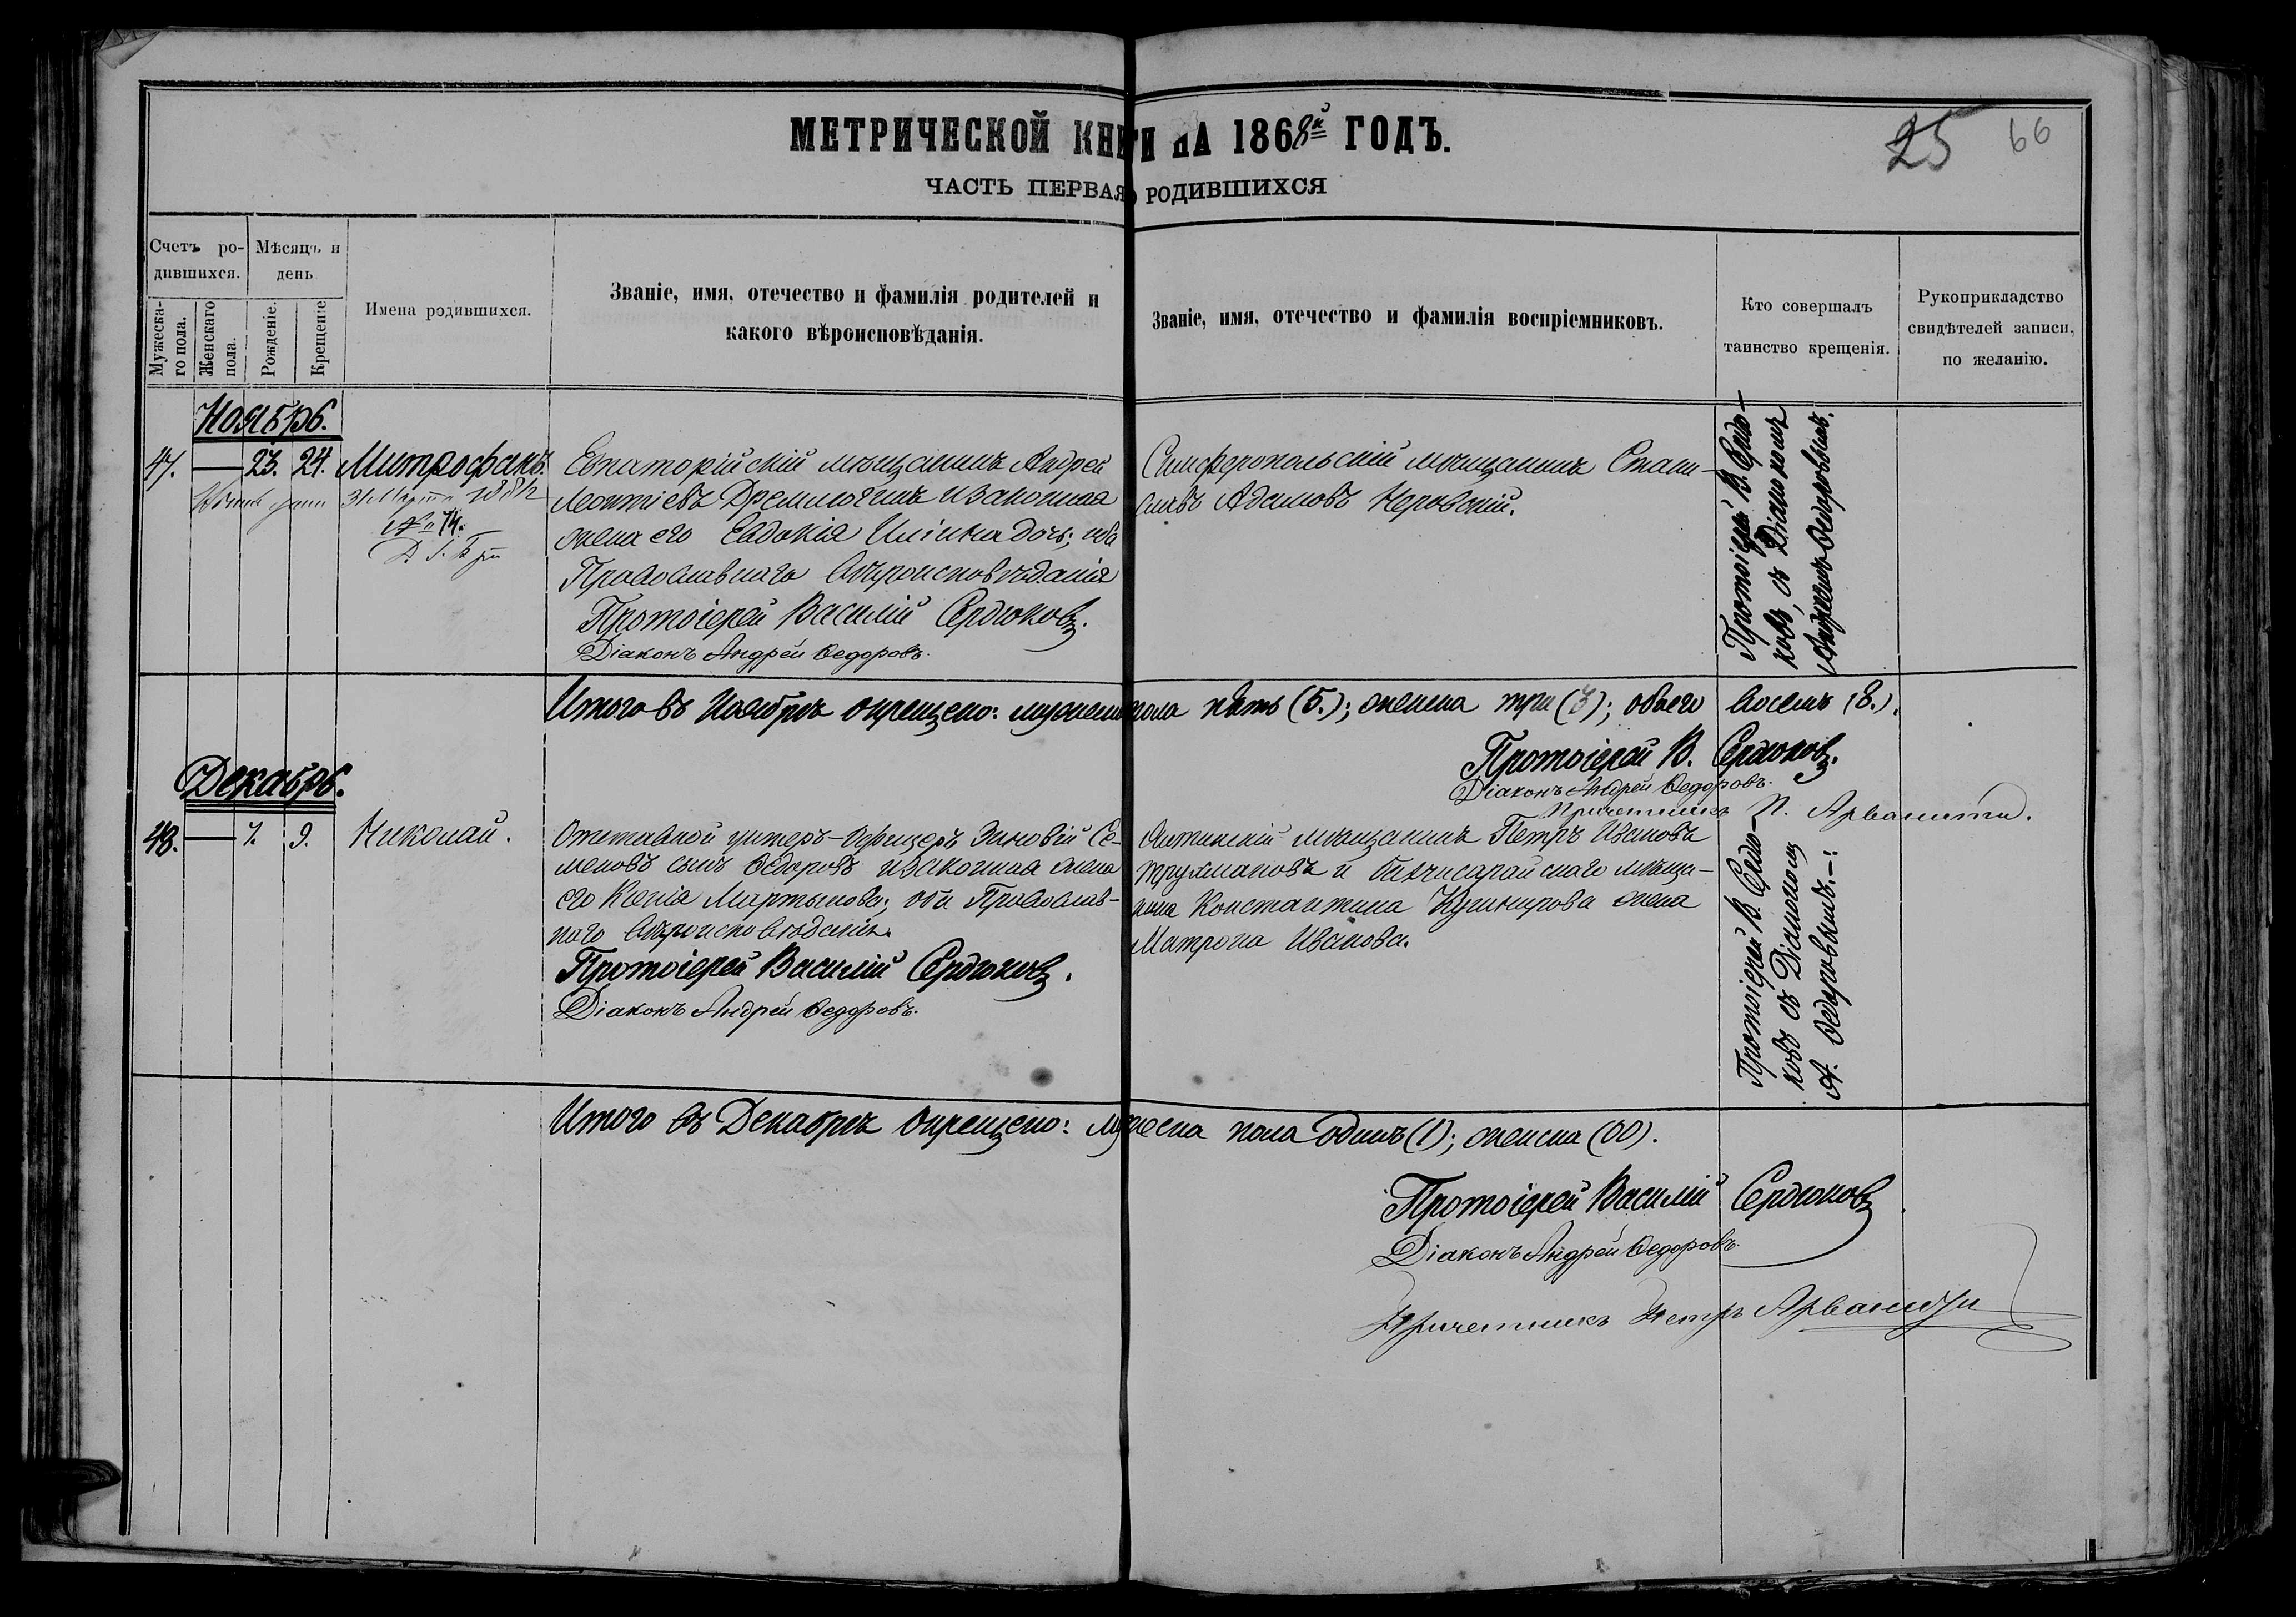 МЕТРИЧЕСКОЙ КНИГИ НА 1868й ГОДЪ.
25 66
ЧАСТЬ ПЕРВАЯ О РОДИВШИХСЯ
Счетъ ро-
дившихся.
Мужеска-
го пола.
Женскаго
пола.
Мѣсяцъ и
день
Рожденіе.
Крещеніе
Имена родившихся.
Званіе, имя, отечество и фамилія родителей и
какого вѣроисповѣданія.
Званіе, имя, отечество и фамилія воспріемниковъ.
Кто совершалъ
таинство крещенія.
Рукоприкладство
свидѣтелей записи,
по желанію.
Ноябрь.
47. — 23. 24. Митрофанъ.
31 Марта
№ 74.
Евпаторійскій мѣщанинъ Андрей
Леонтіевъ и законная
жена его Евдокія Ильина дочь; оба
Православнаго вѣроисповѣданія
Протоіерей Василій Сердюковъ.
Діаконъ Андрей Ѳедоровъ.
Симферопольскій мѣщанинъ Стани-
славъ Адамовъ Керовскій.
Протоіерей В. Сердю-
ковъ, съ Діакономъ
Андреемъ Ѳедоровымъ.
Итого въ Ноябрѣ окрещено: мужеска пола пять (5.); женска три (3); обоего восемь (8.).
Протоіерей В. Сердюковъ.
Діаконъ Андрей Ѳедоровъ.
Причетникъ П. Арванити.
Декабрь.
48. — 7. 9. Николай.
Отставной унтеръ-Офицеръ Зиновій Се-
меновъ сынъ Ѳедоровъ и законная жена
его Ксенія Мартынова; оба Православ-
наго вѣроисповѣданія.
Протоіерей Василій Сердюковъ.
Діаконъ Андрей Ѳедоровъ.
мѣщанинъ Петръ Ивановъ
Трухмановъ и бахчисарайскаго мѣща-
нина Константина Кушнирова жена
Матрона Иванова.
Протоіерей В. Сердю-
ковъ съ Діакономъ
А. Ѳедоровымъ.—
Итого въ Декабрѣ окрещено: мужеска пола одинъ (1); женска (00).
Протоіерей Василій Сердюковъ
Діаконъ Андрей Ѳедоровъ.
Причетникъ Петръ Арванити